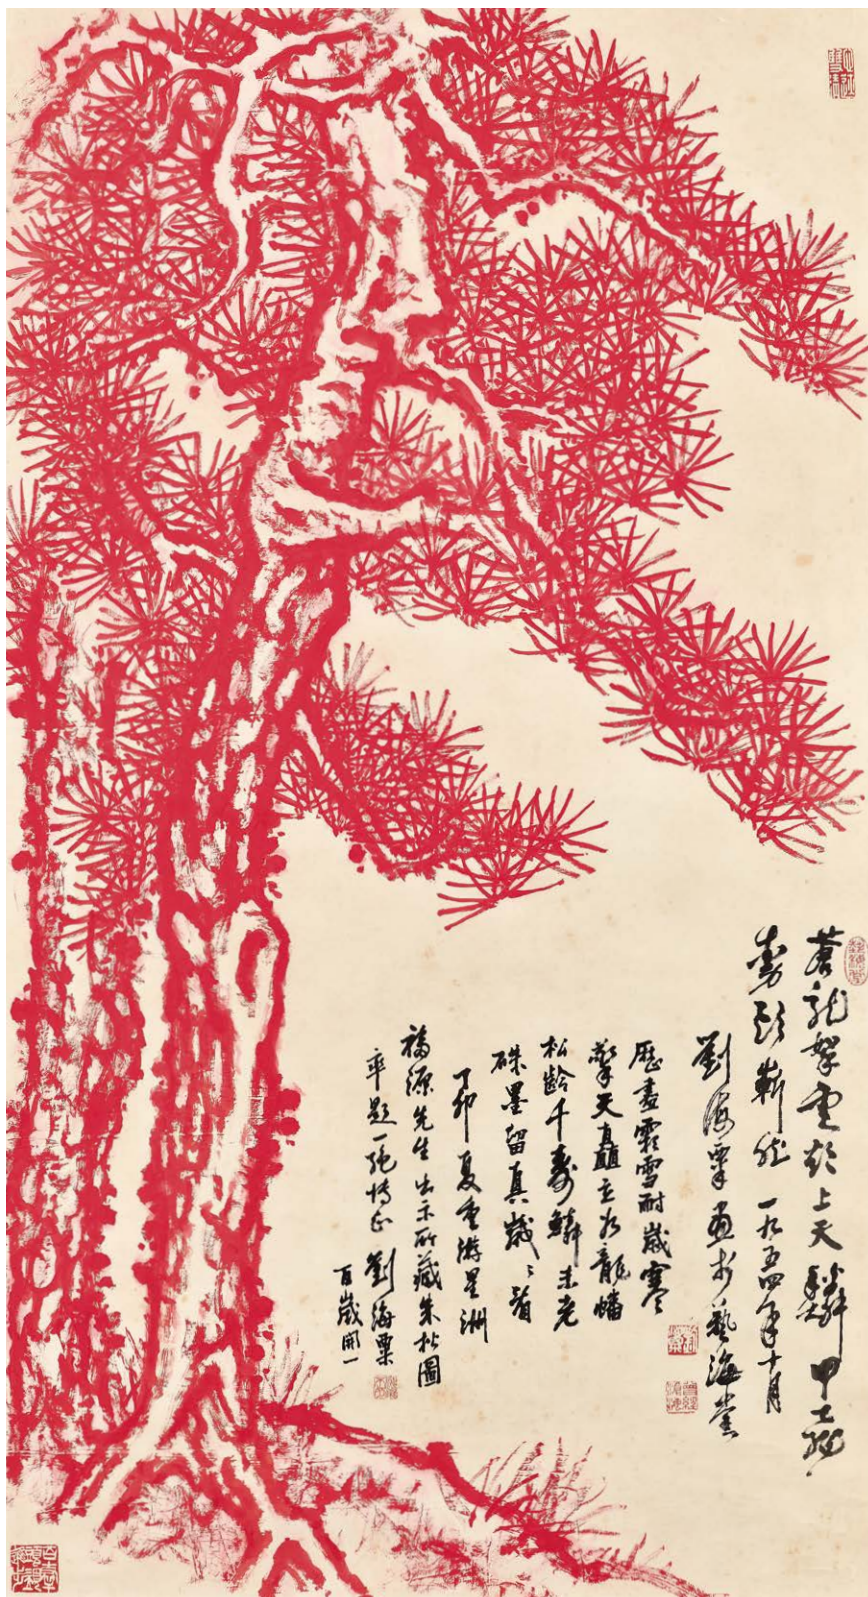 蒼龍拏雲欲上天鱗甲
嶄然一九五四年十月
劉海粟畫於藝海堂
歷盡霜雪耐歲寒
擎天矗立如龍蟠
松齡千壽鱗未老
硃墨留真歲〻看
丁卯夏重游星洲
福源先生出示所藏朱松圖
率題一絕博正 劉海粟
百歲開一